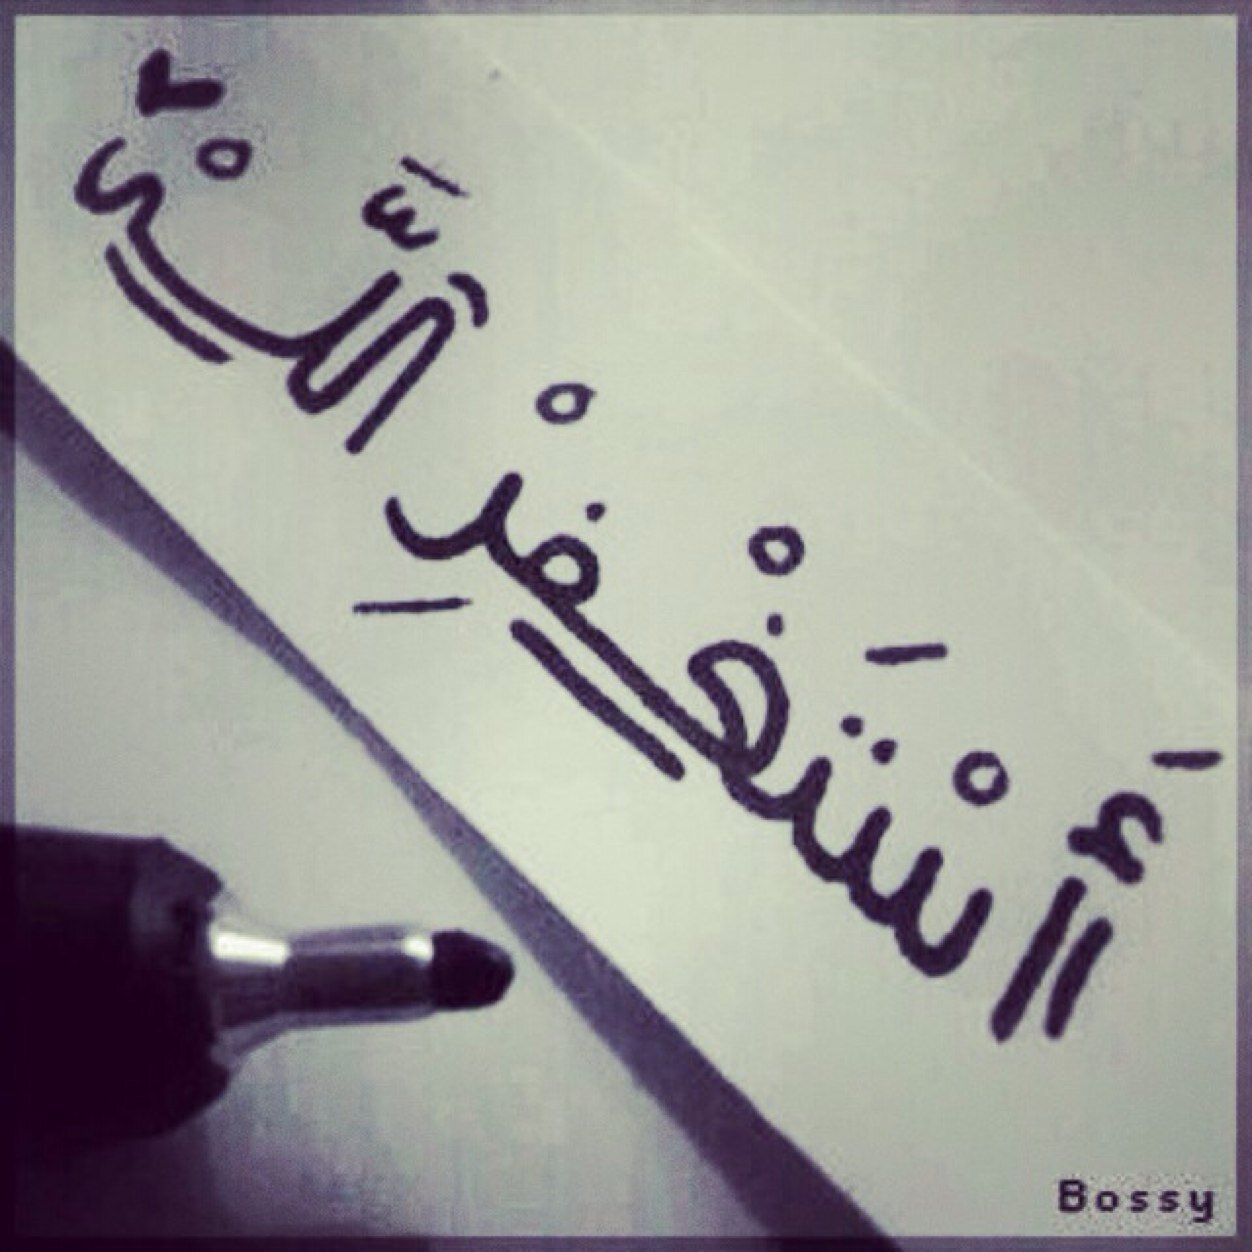 أَسْتَغْفِرْ اللَّهْ
Bossy